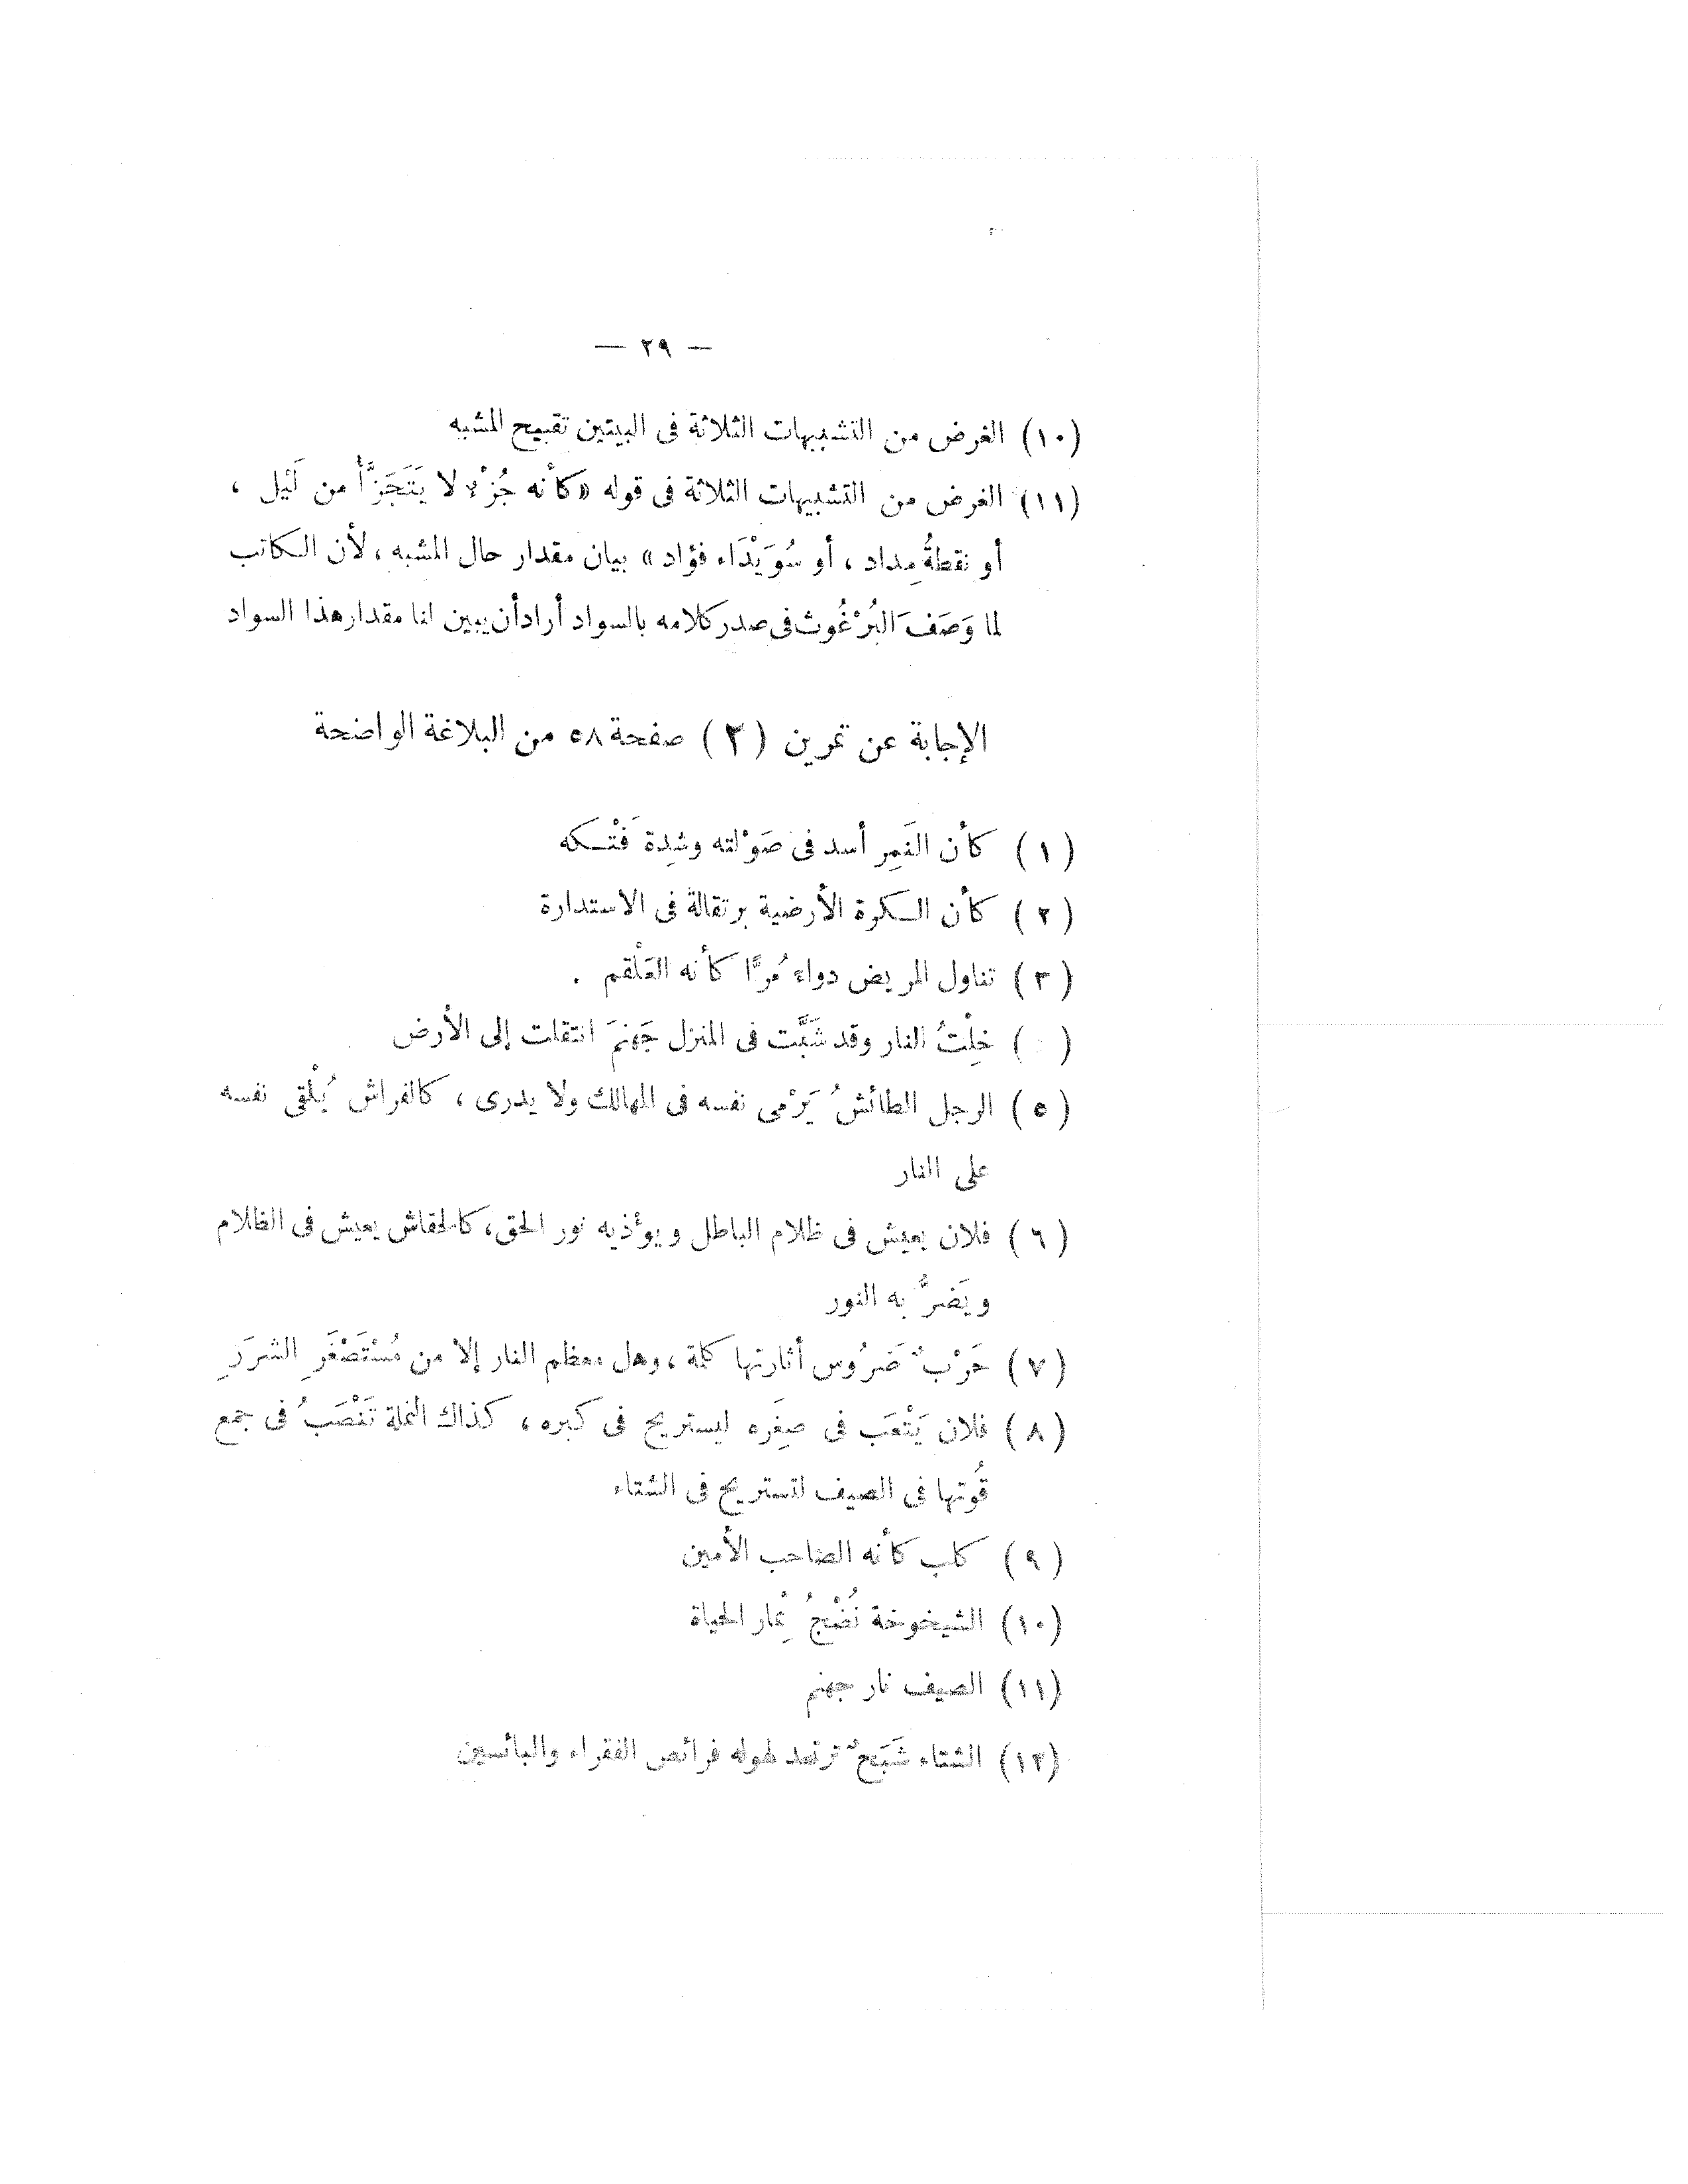 — ٢٩ —
(١٠) الغرض من التشبيهات الثلاثة فى البيتين تقبيح المشبه
(١١) الغرض من التشبيهات الثلاثة فى قوله «كأنه جُزْء لا يَتَجَزَّأُ من لَيْل ،
أو نقطةُ مِداد ، أو سُوَيْدَاء فؤاد» بيان مقدار حال المشبه ، لأن الكاتب
لما وَصَفَ البُرْغُوث فى صدر كلامه بالسواد أراد أن يبين لنا مقدار هذا السواد
الإجابة عن تمرين (٢) صفحة ٥٨ من البلاغة الواضحة
(١) كأن النَمِر أسد فى صَوْلته وشِدة فَتْكه
(٢) كأن الكرة الأرضية برتقالة فى الاستدارة
(٣) تناول المريض دواءً مُرًّا كأنه العَلْقم .
( ) خِلْتُ النار وقد شَبَّت فى المنزل جَهنمَ انتقلت إلى الأرض
(٥) الرجل الطائشُ يَرْمى نفسه فى المهالك ولا يدرى ، كالفراش يُلْقى نفسه
على النار
(٦) فلان يعيش فى ظلام الباطل ويؤذيه نور الحق ، كالخفاش يعيش فى الظلام
ويَضرُّ به النور
(٧) حَرْبٌ ضَرُوس أثارتها كلمة ، وهل معظم النار إلا من مُسْتَصْغَرِ الشررَِ
(٨) فلان يَتْعَب فى صِغَره ليستريح فى كبره ، كذاك النملة تَنْصَبُ فى جمع
قُوتها فى الصيف لتستريح فى الشتاء
(٩) كلب كأنه الصاحب الأمين
(١٠) الشيخوخة نُضْجُ ثِمار الحياة
(١١) الصيف نار جهنم
(١٢) الشتاء شَبَحٌ ترتعد لهوله فرائص الفقراء والبائسين